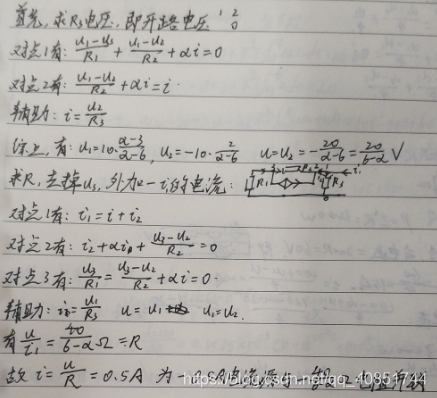 首先,求R₃电压,即开路电压 1 2 0
对点1有: (u₁-u₅)/R₁ + (u₁-u₂)/R₂ + αi=0
对点2有: (u₁-u₂)/R₂ + αi=i
辅助: i=u₂/R₃
综上,有: u₁=10·(α-3)/(α-6), u₂=-10·2/(α-6) u=u₂=-20/(α-6)=20/(6-α) V
求R,去掉u₅,外加一i₁的电流: R₁ R₂ R₃
对点1有: i₁=i+i₂
对点2有: i₂+αi+(u₃-u₂)/R₂=0
对点3有: u₃/R₁=(u₃-u₂)/R₂+αi=0
辅助: i=u₁/R₃ u=u₁ u₁=u₂.
有 u/i₁=40/(6-α)Ω=R
故 i=u/R=0.5A 为 0.5A电流源与
https://blog.csdn.net/qq_40851744